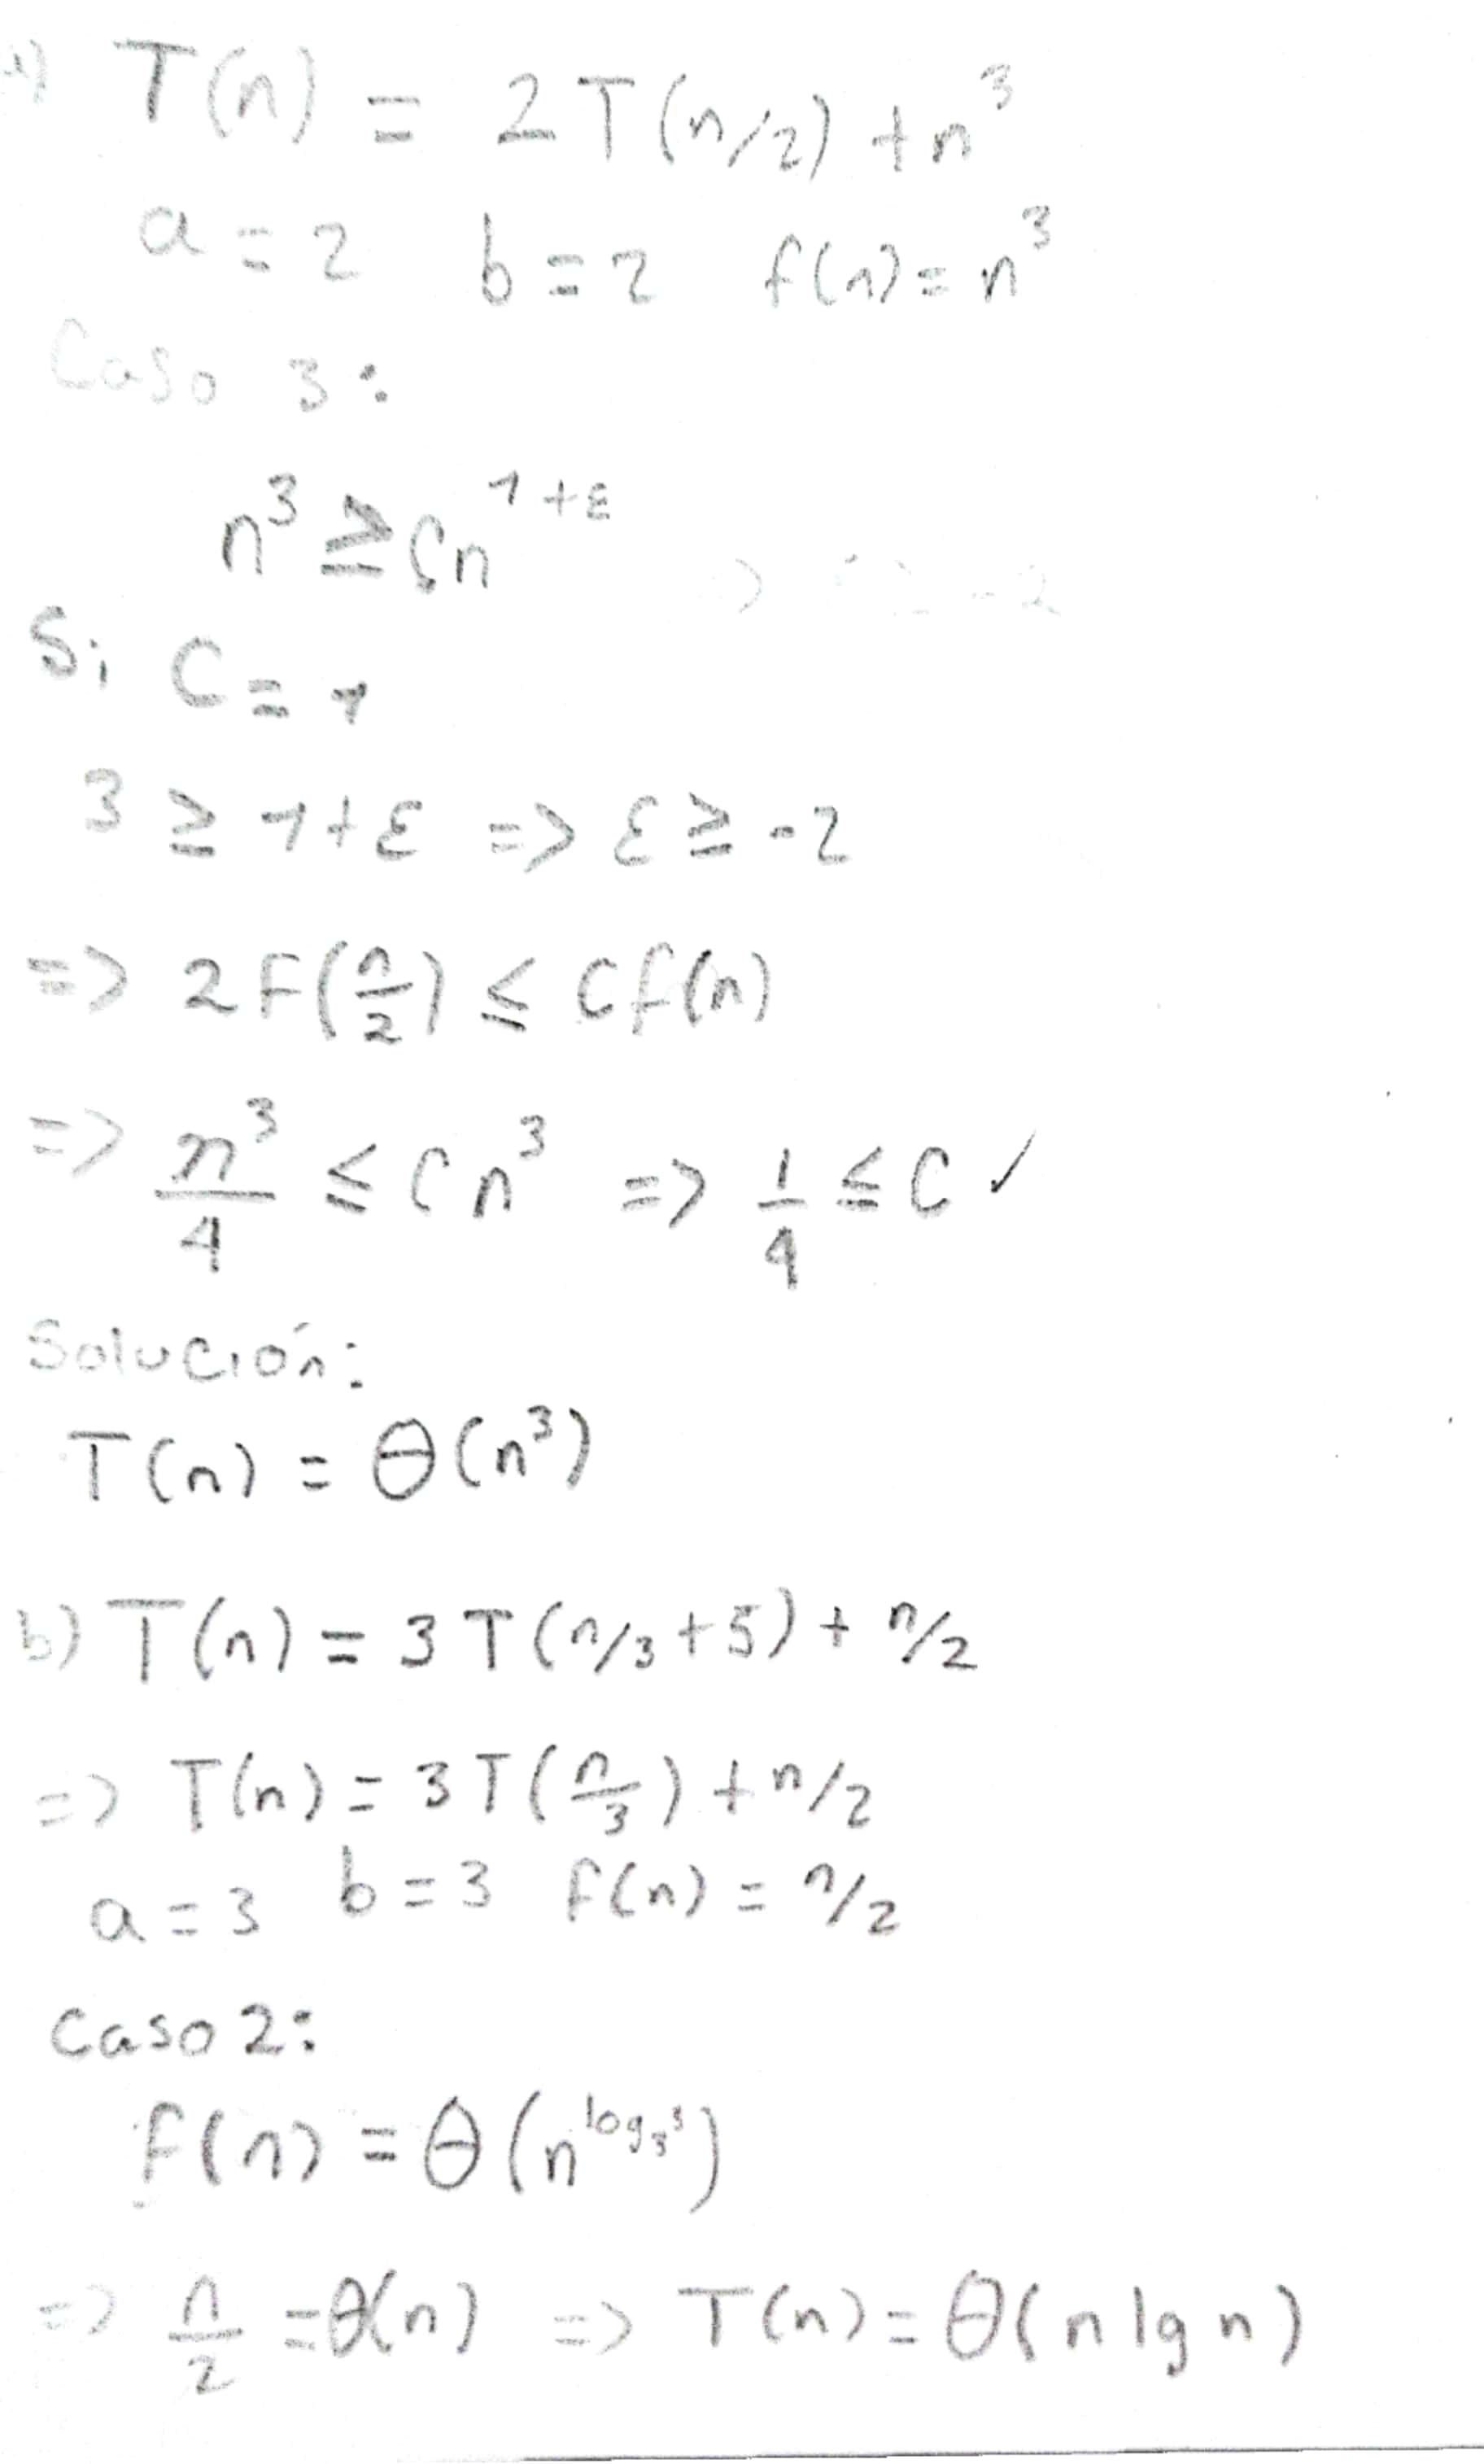 a) T(n) = 2T(n/2) + n³
a = 2 b = 2 f(n) = n³
Caso 3:
n³ ≥ Cn^(1+ε)
Si C = 1
3 ≥ 1+ε => ε ≥ -2
=> 2F(n/2) ≤ Cf(n)
=> n³/4 ≤ Cn³ => 1/4 ≤ C ✓
Solución:
T(n) = Θ(n³)
b) T(n) = 3T(n/3+5) + n/2
=> T(n) = 3T(n/3) + n/2
a = 3 b = 3 f(n) = n/2
Caso 2:
f(n) = Θ(n^(log₃3))
=> n/2 = Θ(n) => T(n) = Θ(n lg n)